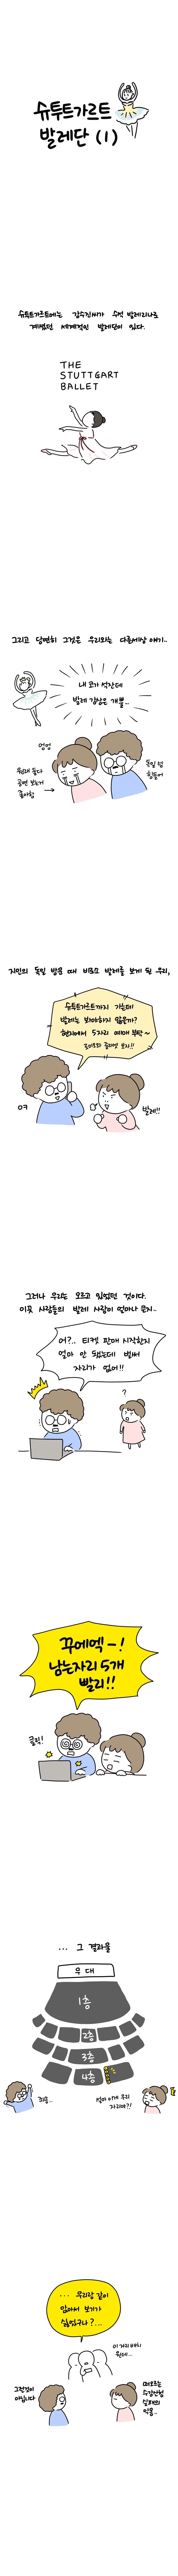 슈투트가르트
발레단 (1)
슈투트가르트에는 강수진씨가 수석 발레리나로
계셨던 세계적인 발레단이 있다.
THE
STUTTGART
BALLET
그리고 당연히 그것은 우리와는 다른세상 얘기..
내 코가 석잔데
발레 감상은 개뿔...
엉엉
독일 넘
힘들어
원래 둘다
공연 보는거
좋아함
지인의 독일 방문 때 비로소 발레를 보게 된 우리,
슈투트가르트까지 가는데
발레는 봐야하지 않을까?
한자에서 5자리 예매 부탁~
로미오와 줄리엣 보자!!
OK
발레!!
그러나 우리는 모르고 있었던 것이다.
이곳 사람들의 발레 사랑이 얼마나 큰지..
어?.. 티켓 판매 시작한지
얼마 안 됐는데 벌써
자리가 없어!!
?
꾸에엑-!
남는자리 5개
빨리!!
클릭!
... 그 결과물
무대
1층
2층
3층
4층
최종...
설마 이게 우리
자리야?!
... 우리랑 같이
앉아서 보기가
싫었구나?...
이 거리 배치
뭔데...
그런것이
아닙니다
떠오르는
수강신청
실패의
악몽...